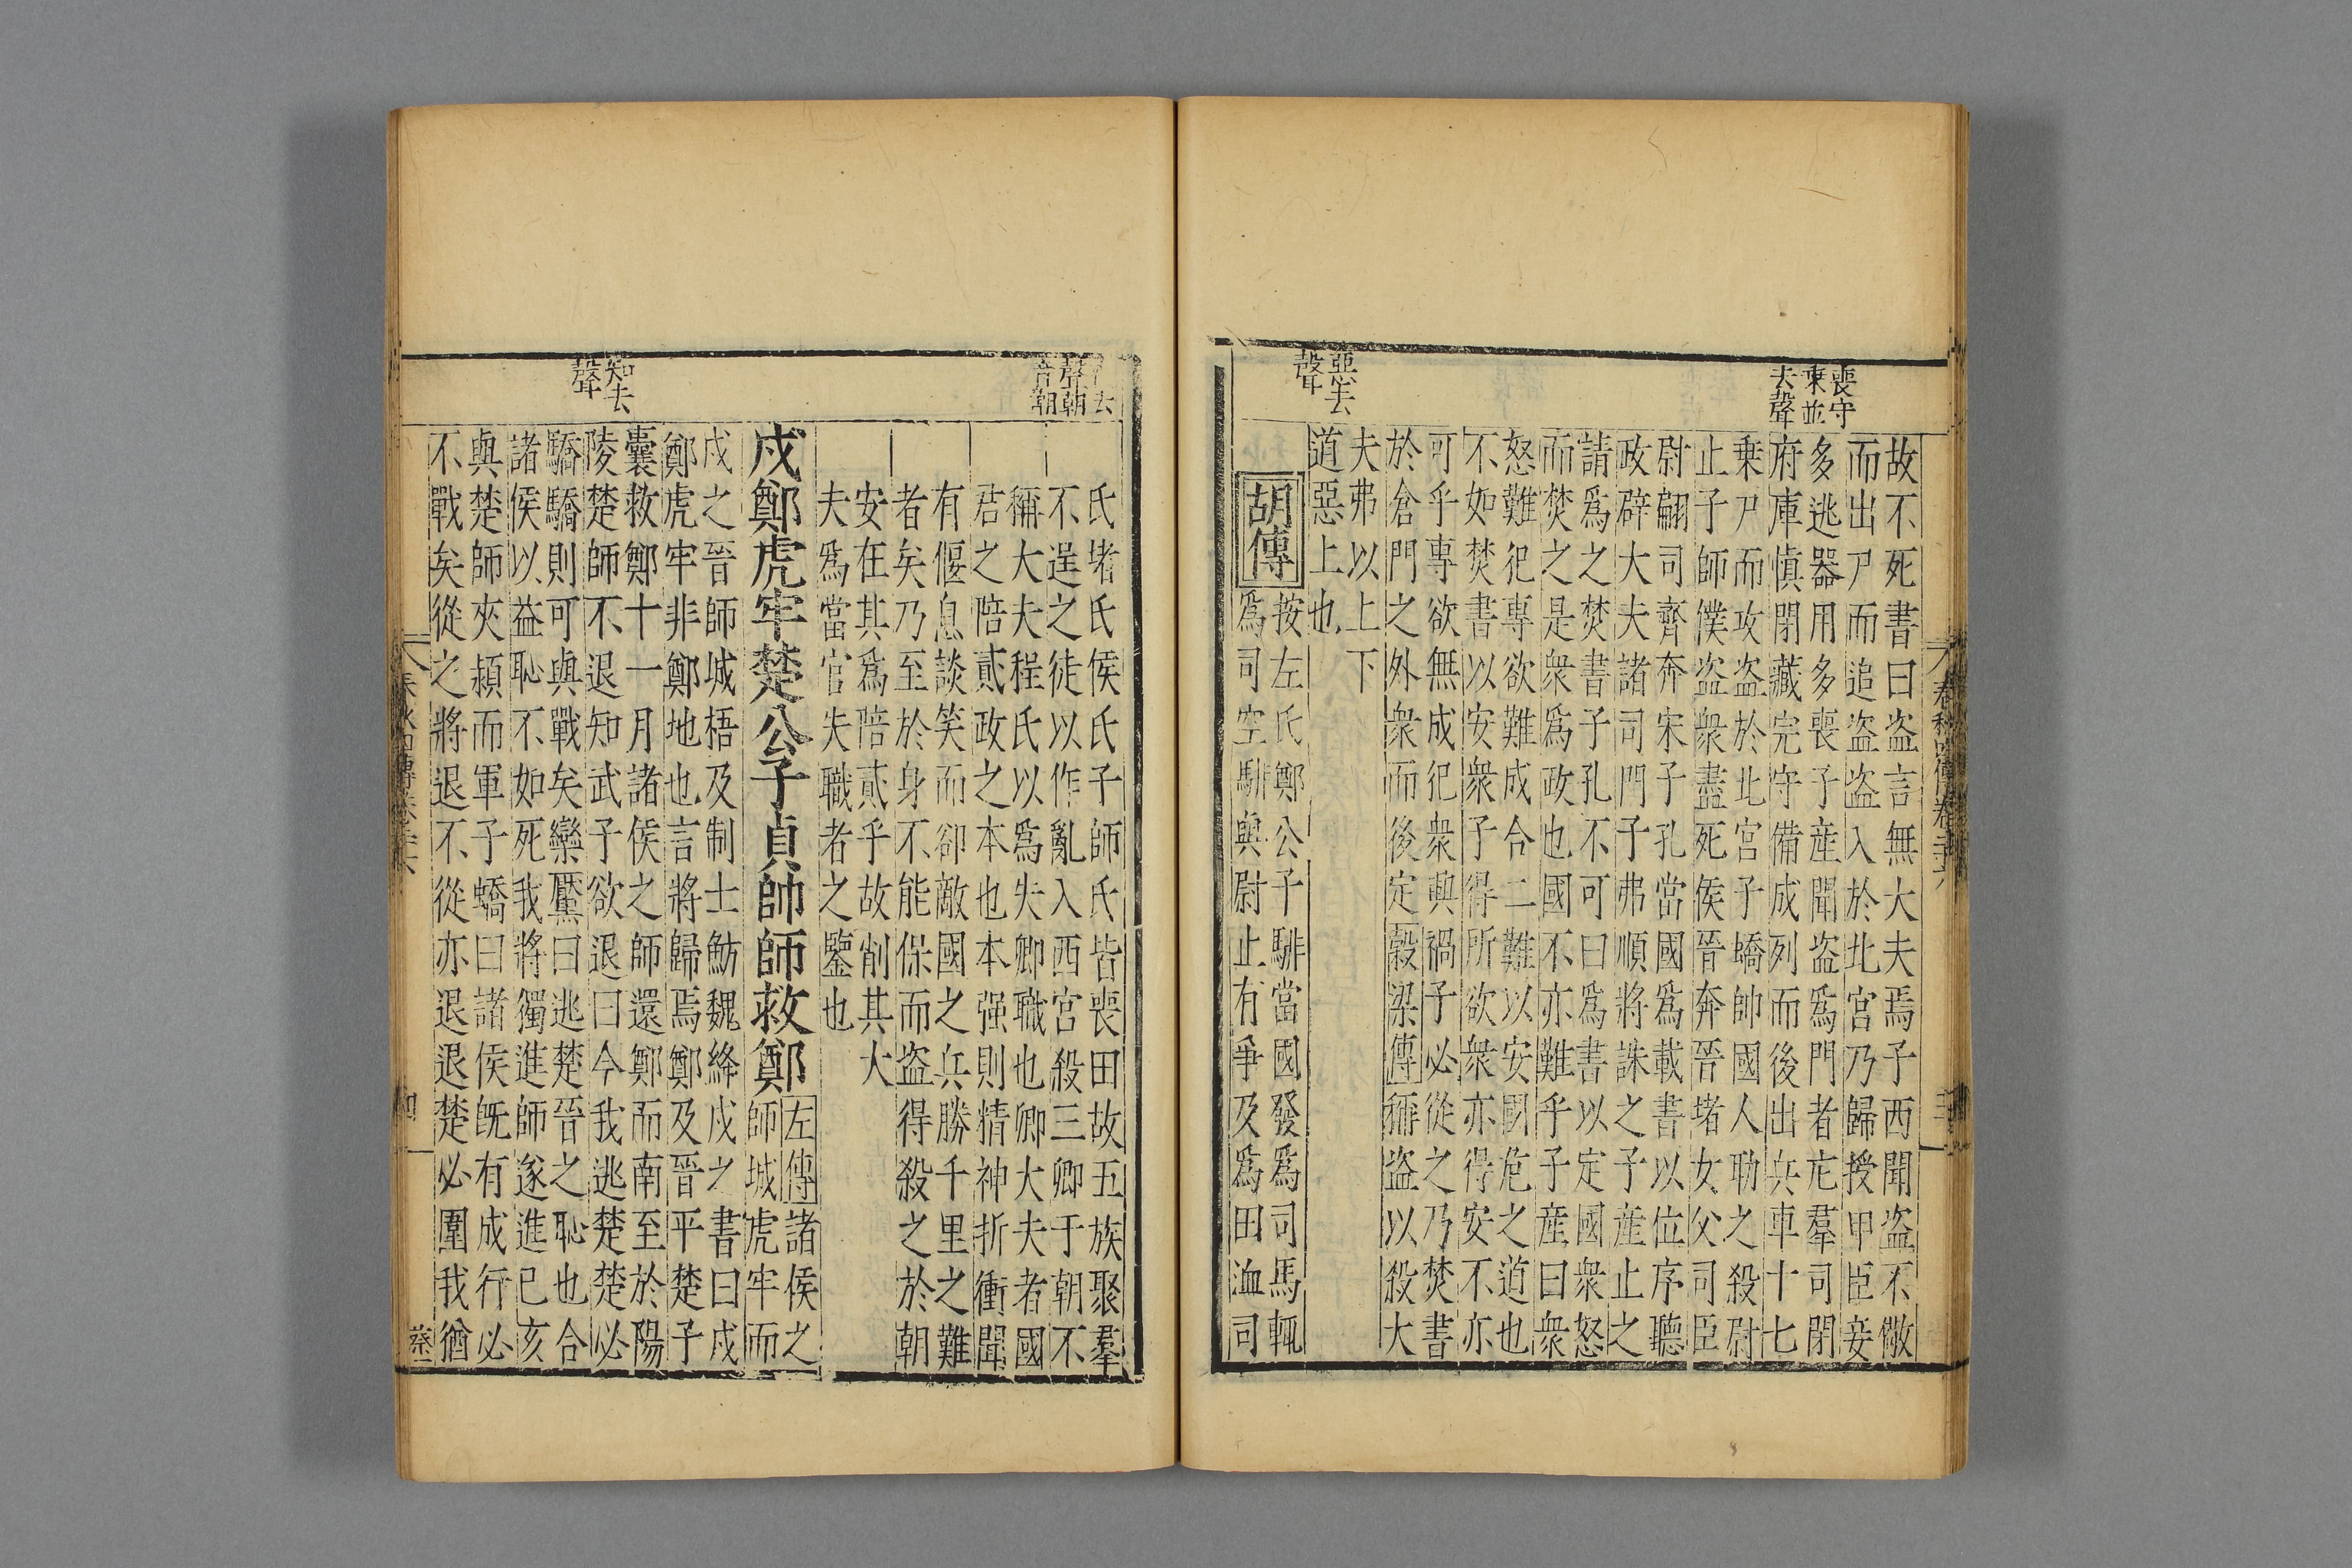 喪守
乗並
去聲
惡去
聲
故不死書曰盗言無大夫焉子西聞盗不儆
而出尸而追盗盗入於北宮乃歸授甲臣妾
多逃器用多喪子産聞盗爲門者庀羣司閉
府庫慎閉藏完守備成列而後出兵車十七
乗尸而攻盗於北宮子蟜帥國人助之殺尉
止子師僕盗衆盡死侯晉奔晉堵女父司臣
尉翩司齊奔宋子孔當國爲載書以位序聽
政辟大夫諸司門子弗順將誅之子産止之
請爲之焚書子孔不可曰爲書以定國衆怒
而焚之是衆爲政也國不亦難乎子産曰衆
怒難犯專欲難成合二難以安國危之道也
不如焚書以安衆子得所欲衆亦得安不亦
可乎專欲無成犯衆興禍子必從之乃焚書
於倉門之外衆而後定穀梁傳稱盗以殺大
夫弗以上下
道惡上也
胡傳
按左氏鄭公子騑當國發爲司馬輒
爲司空騑與尉止有爭及爲田洫司
聲朝
音朝
知去
聲
氏堵氏侯氏子師氏皆喪田故五族聚羣
不逞之徒以作亂入西宮殺三卿于朝不
稱大夫程氏以爲失卿職也卿大夫者國
君之陪貳政之本也本强則精神折衝聞
有偃息談笑而卻敵國之兵勝千里之難
者矣乃至於身不能保而盗得殺之於朝
安在其爲陪貳乎故削其大
夫爲當官失職者之鑒也
戍鄭虎牢楚公子貞帥師救鄭
左傳諸侯之
師城虎牢而
戍之晉師城梧及制士魴魏絳戍之書曰戍
鄭虎牢非鄭地也言將歸焉鄭及晉平楚子
囊救鄭十一月諸侯之師還鄭而南至於陽
陵楚師不退知武子欲退曰今我逃楚楚必
驕驕則可與戰矣欒黶曰逃楚晉之恥也合
諸侯以益恥不如死我將獨進師遂進已亥
與楚師夾潁而軍子蟜曰諸侯旣有成行必
不戰矣從之將退不從亦退退楚必圍我猶